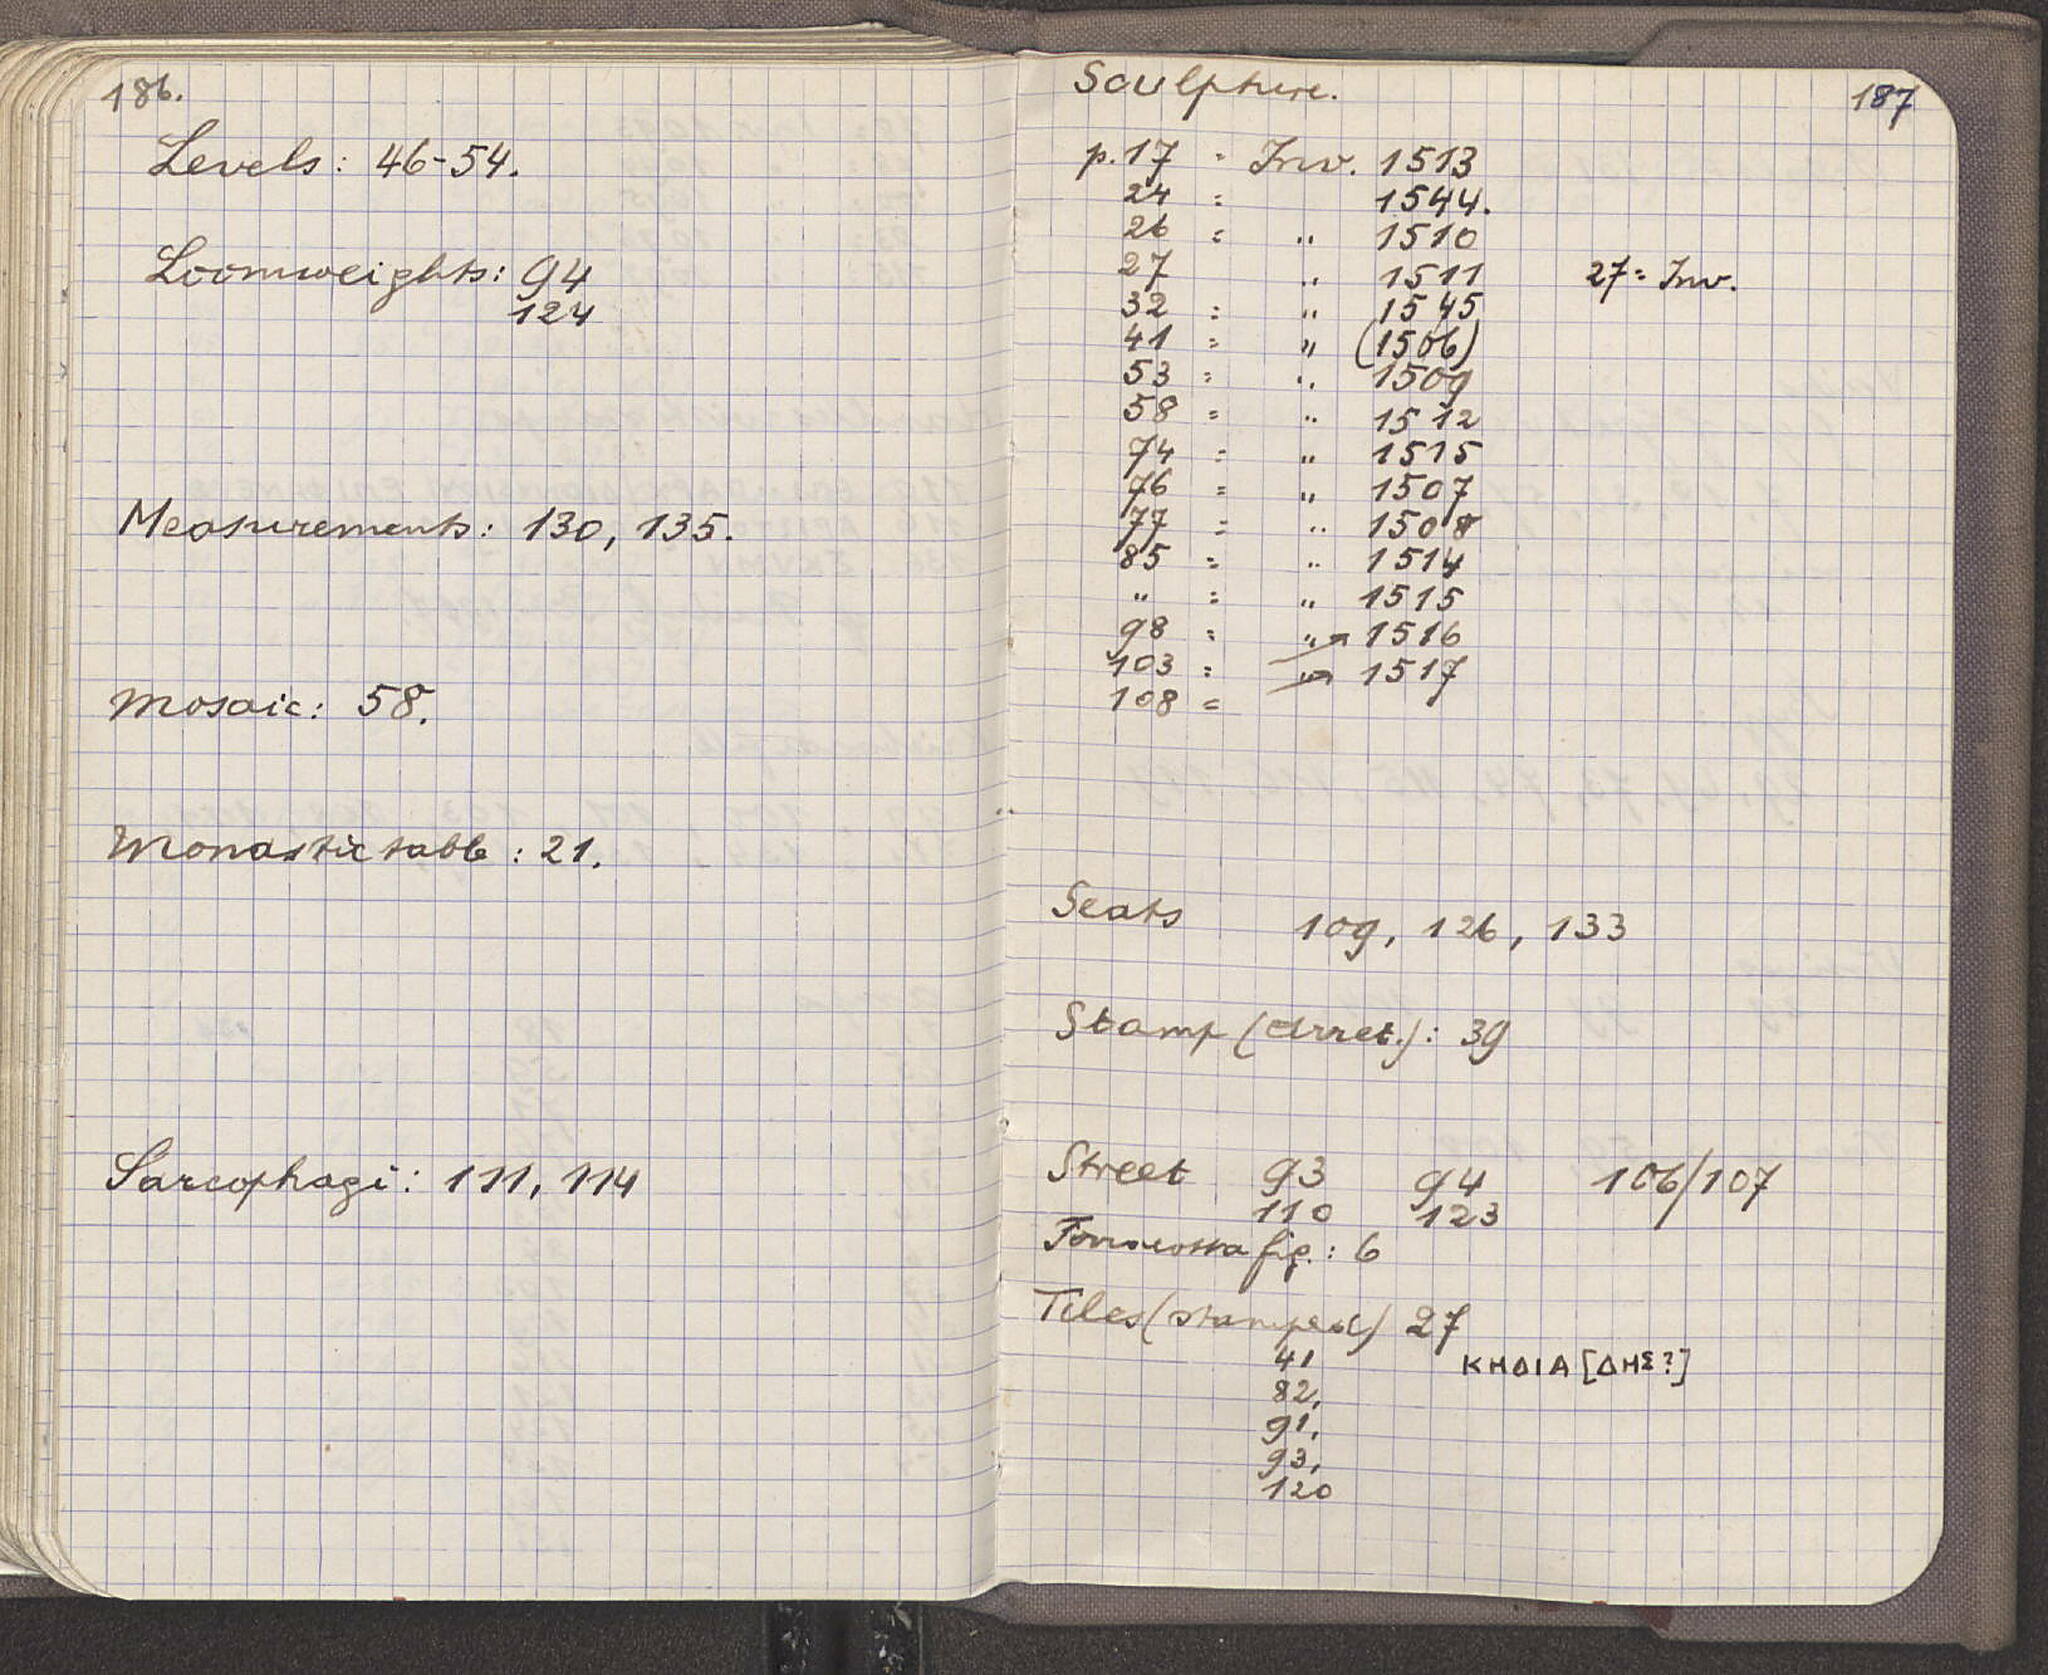 186.
Levels: 46-54.
Loomweights: 94
124
Measurements: 130, 135.
Mosaic: 58.
Monastic table: 21.
Sarcophagi: 111, 114
187
Sculpture.
p.17 = Inv. 1513
24 = 1544.
26 = " 1510
27 " 1511 27 = Inv.
32 = " 1545
41 = " (1506)
53 = " 1509
58 = " 1512
74 = " 1515
76 = " 1507
77 = " 1508
85 = " 1514
" = " 1515
98 = " 1516
103 = " 1517
108 =
Seats 109, 126, 133
Stamp (Arret.): 39
Street 93 94 106/107
110 123
Terracotta fig.: 6
Tiles (stamped) 27
41 ΚΗΔΙΑ [ΔΗΣ?]
82,
91,
93,
120